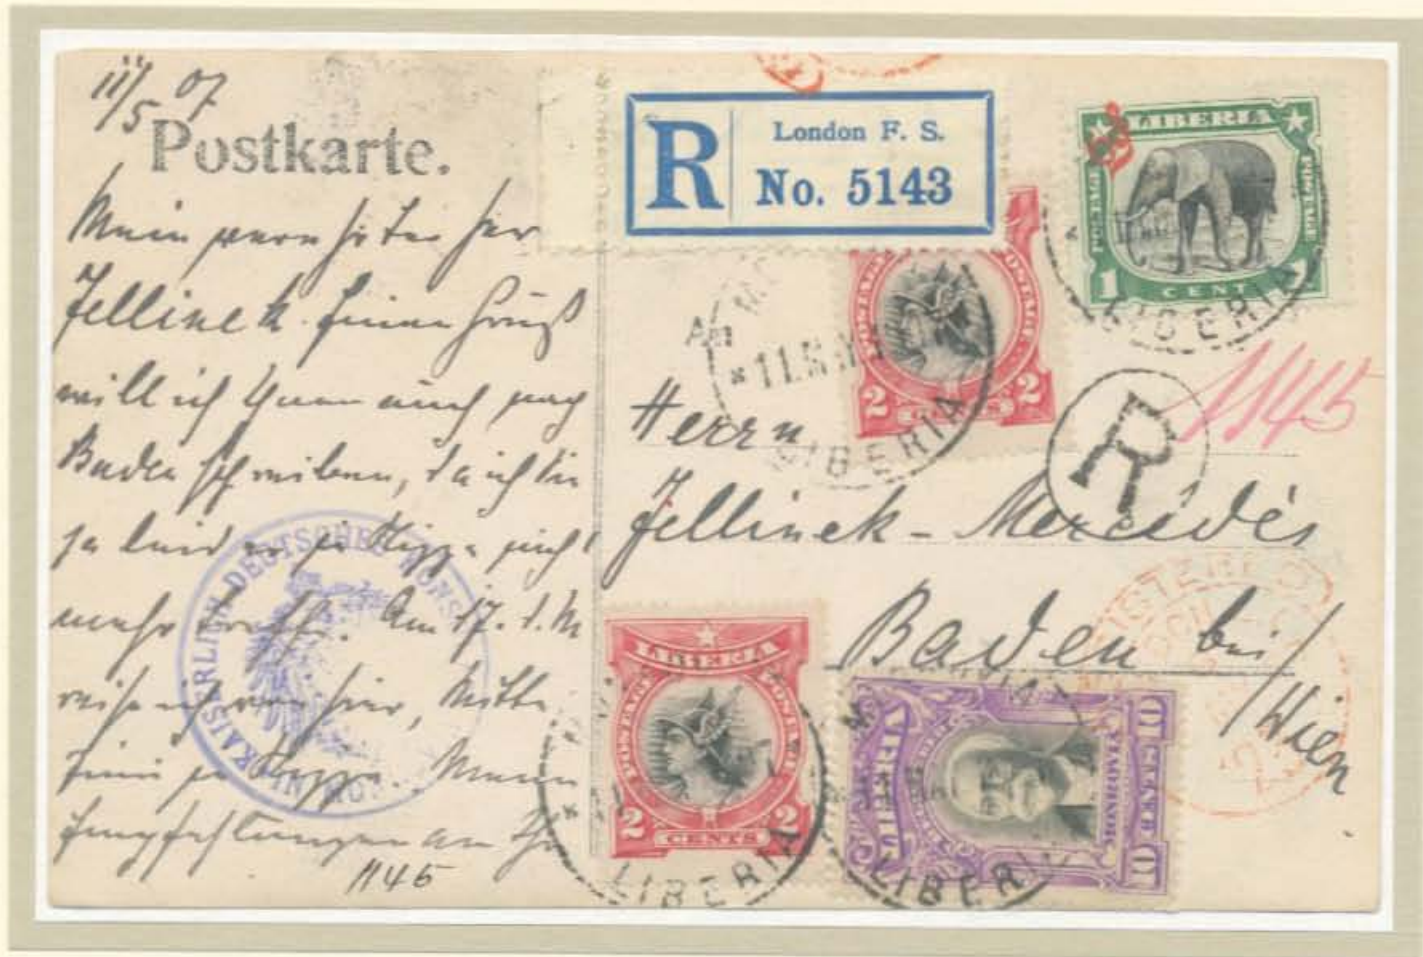 11/5 07
Postkarte.
Mein verehrter Herr
Jellinek. Einen Gruß
will ich Ihnen auch nach
Baden schreiben, da ich Sie
ja leider in Nizza nicht
mehr treffe. Am 17. d. M
reise ich von hier, Mitte
Juni in Nizza. Meine
Empfehlungen an Ihre
1145
KAISERLICH DEUTSCHES KONS
IN MON
R
London F. S.
No. 5143
LIBERIA
POSTAGE
POSTAGE
1 CENT 1
LIBERIA
POSTAGE
POSTAGE
2 CENTS 2
Am
LIBERIA
1145
R
Herrn
Jellinek-Mercedès
Baden bei
Wien
REGISTERED
LIBERIA
POSTAGE
POSTAGE
2 CENTS 2
LIBERIA
LIBERIA
MONROVIA
10 CENTS 10
LIBERIA